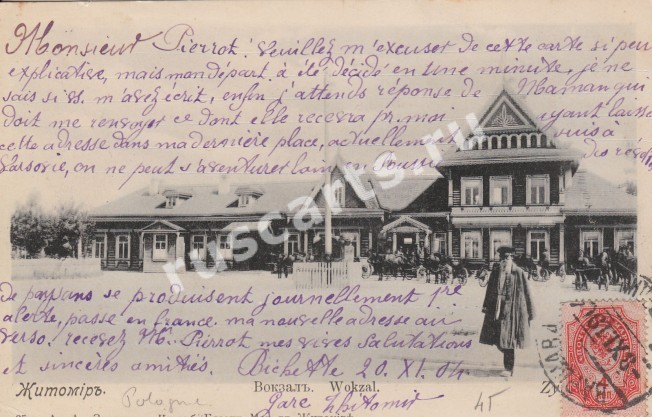 Monsieur Pierrot! veuillez m'excuser de cette carte si peu
explicative, mais mon départ à été décidé en une minute, je ne
sais si vs. m'avez écrit, enfin j'attends réponse de Maman qui
doit me renvoyer ce dont elle recevra pr. moi ayant laissé
cette adresse dans ma dernière place, actuellement
Varsovie, on ne peut s'aventurer
De paysans se produisent journellement
alerte, passe en france. ma nouvelle adresse au
verso. recevez M. Pierrot mes vives salutations
et sincères amitiés. Bichette 20. XI. 04
ruscarts.ru
Житоміръ. Вокзалъ. Wokzal.
Pologne
gare Zhitomir
45